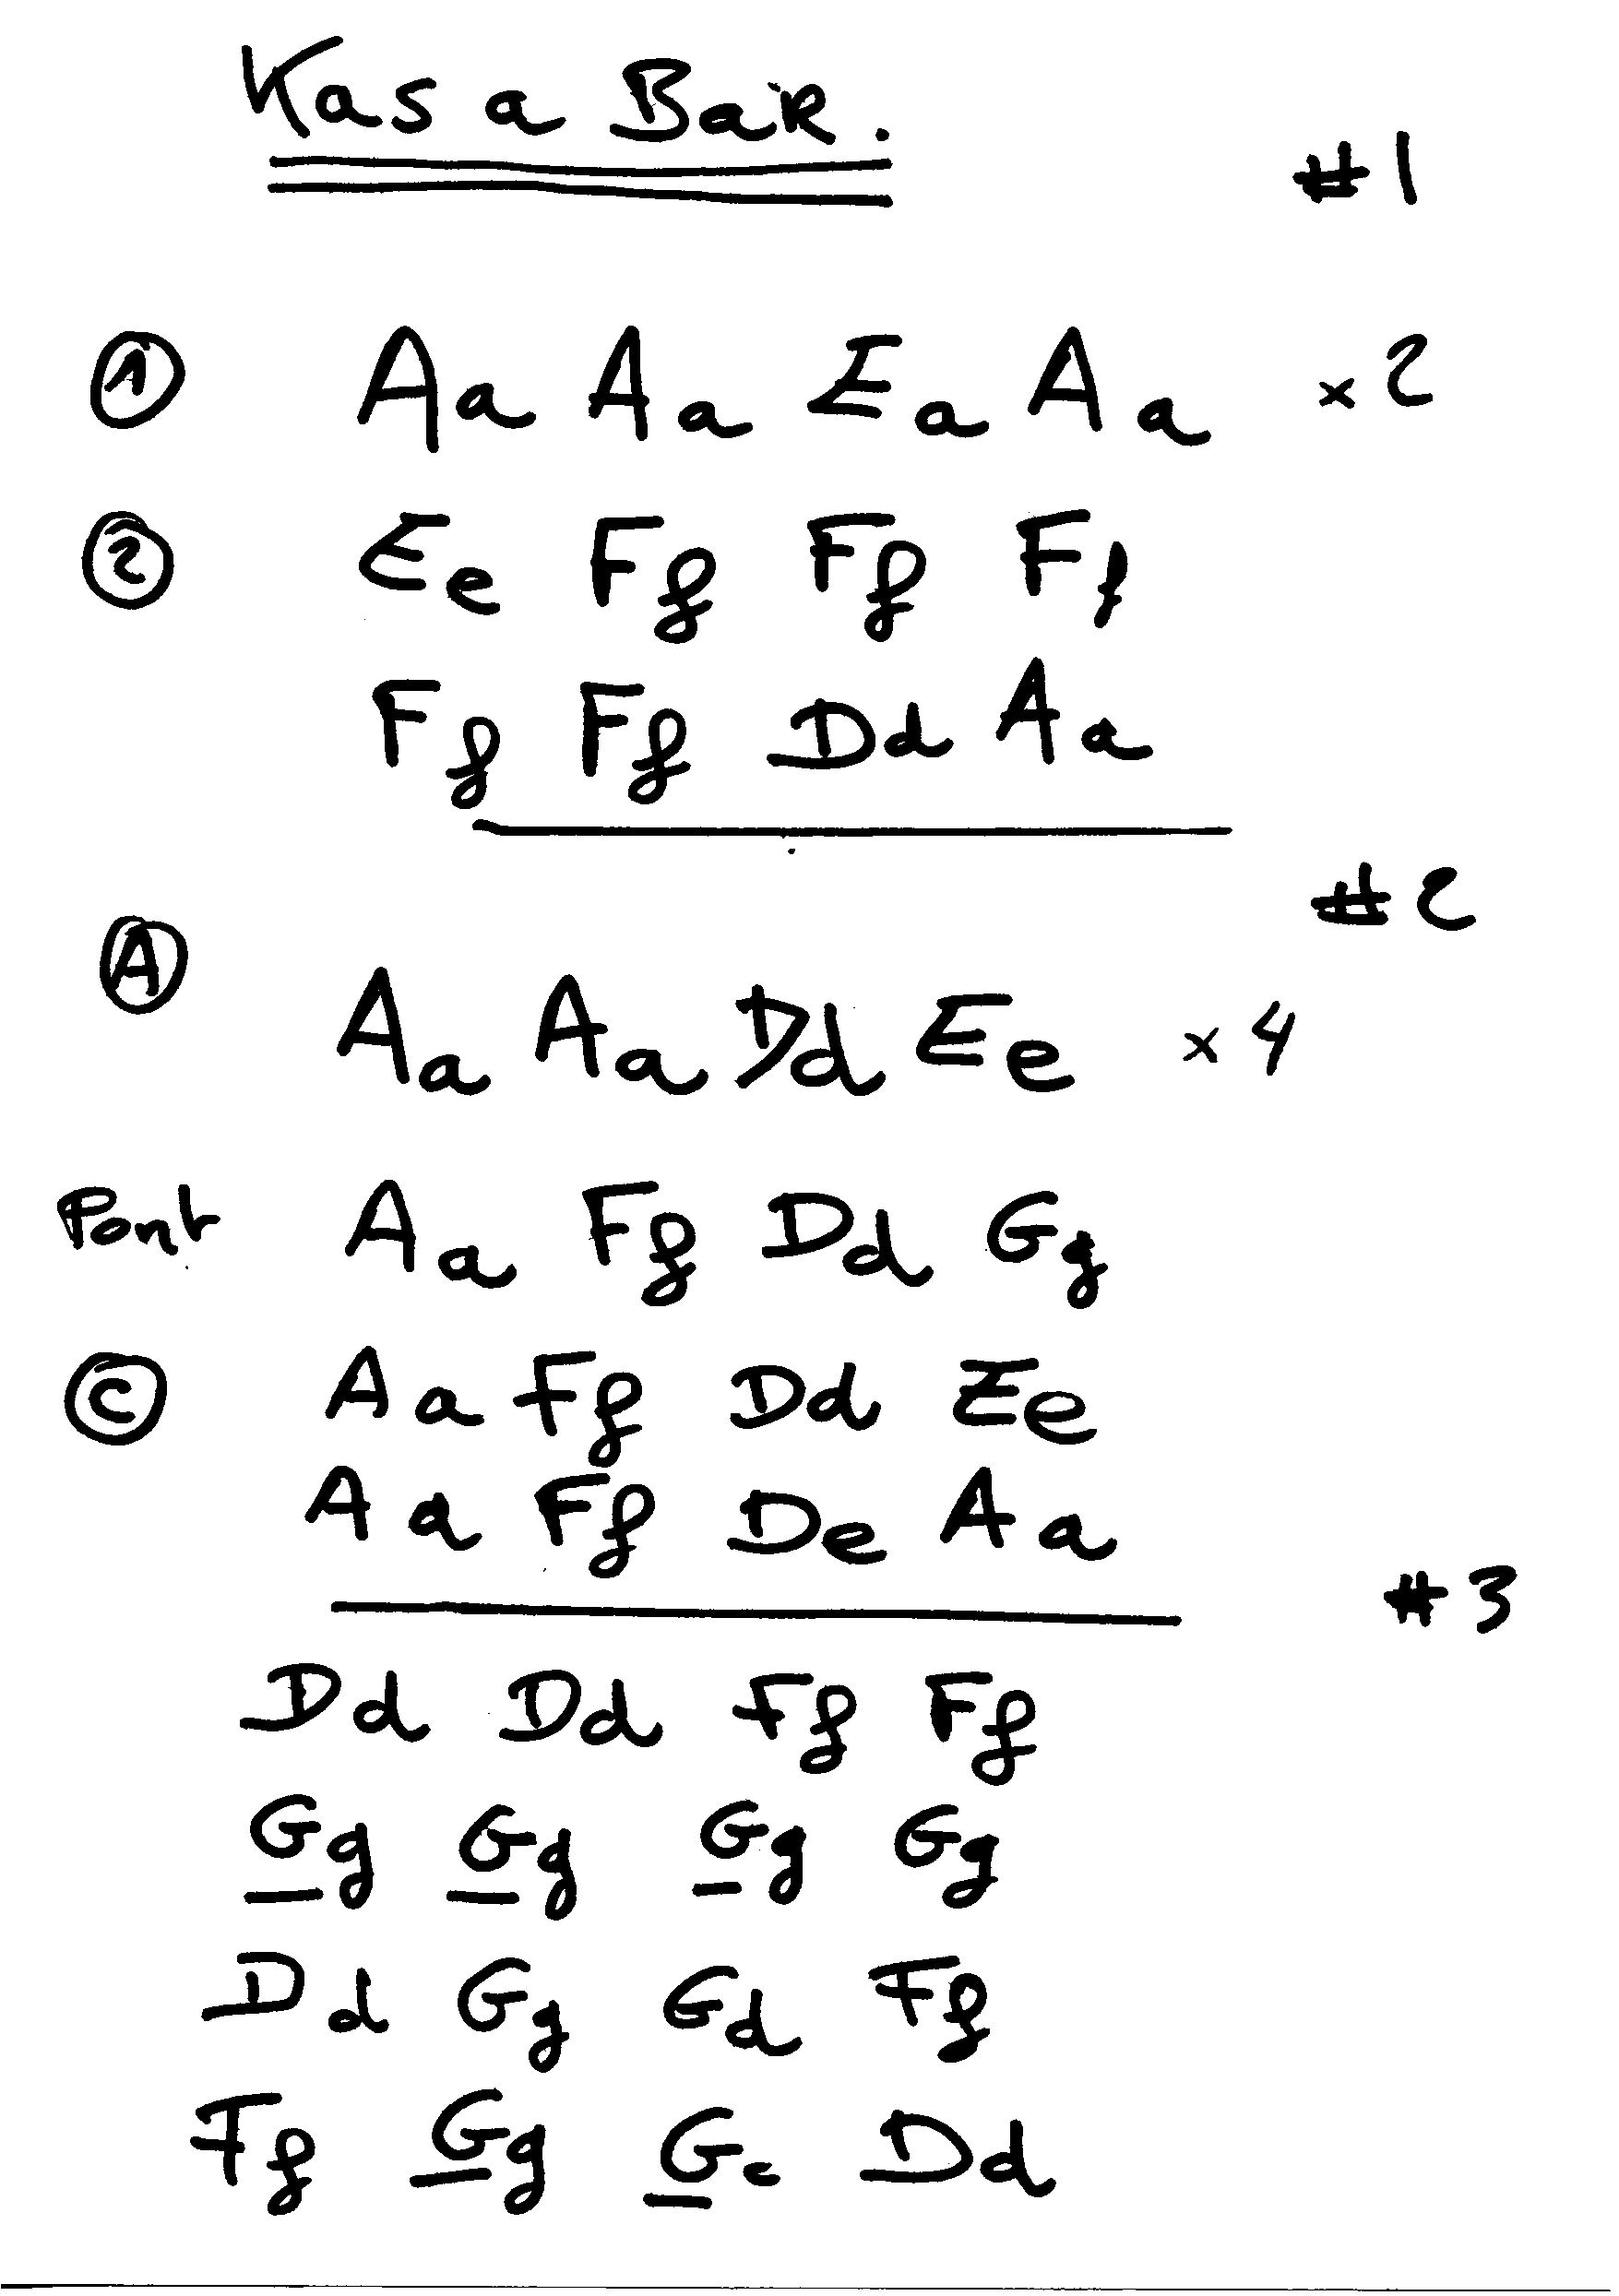 Kas a Bar.
#1
① Aa Aa Ea Aa × 2
② Ee Ff Ff Ff
Ff Ff Dd Aa
#2
Ⓐ Aa Aa Dd Ee × 4
Pont Aa Ff Dd Gg
Ⓒ Aa Ff Dd Ee
Aa Ff De Aa
#3
Dd Dd Ff Ff
Gg Gg Gg Gg
Dd Gg Gd Ff
Ff Gg Gc Dd